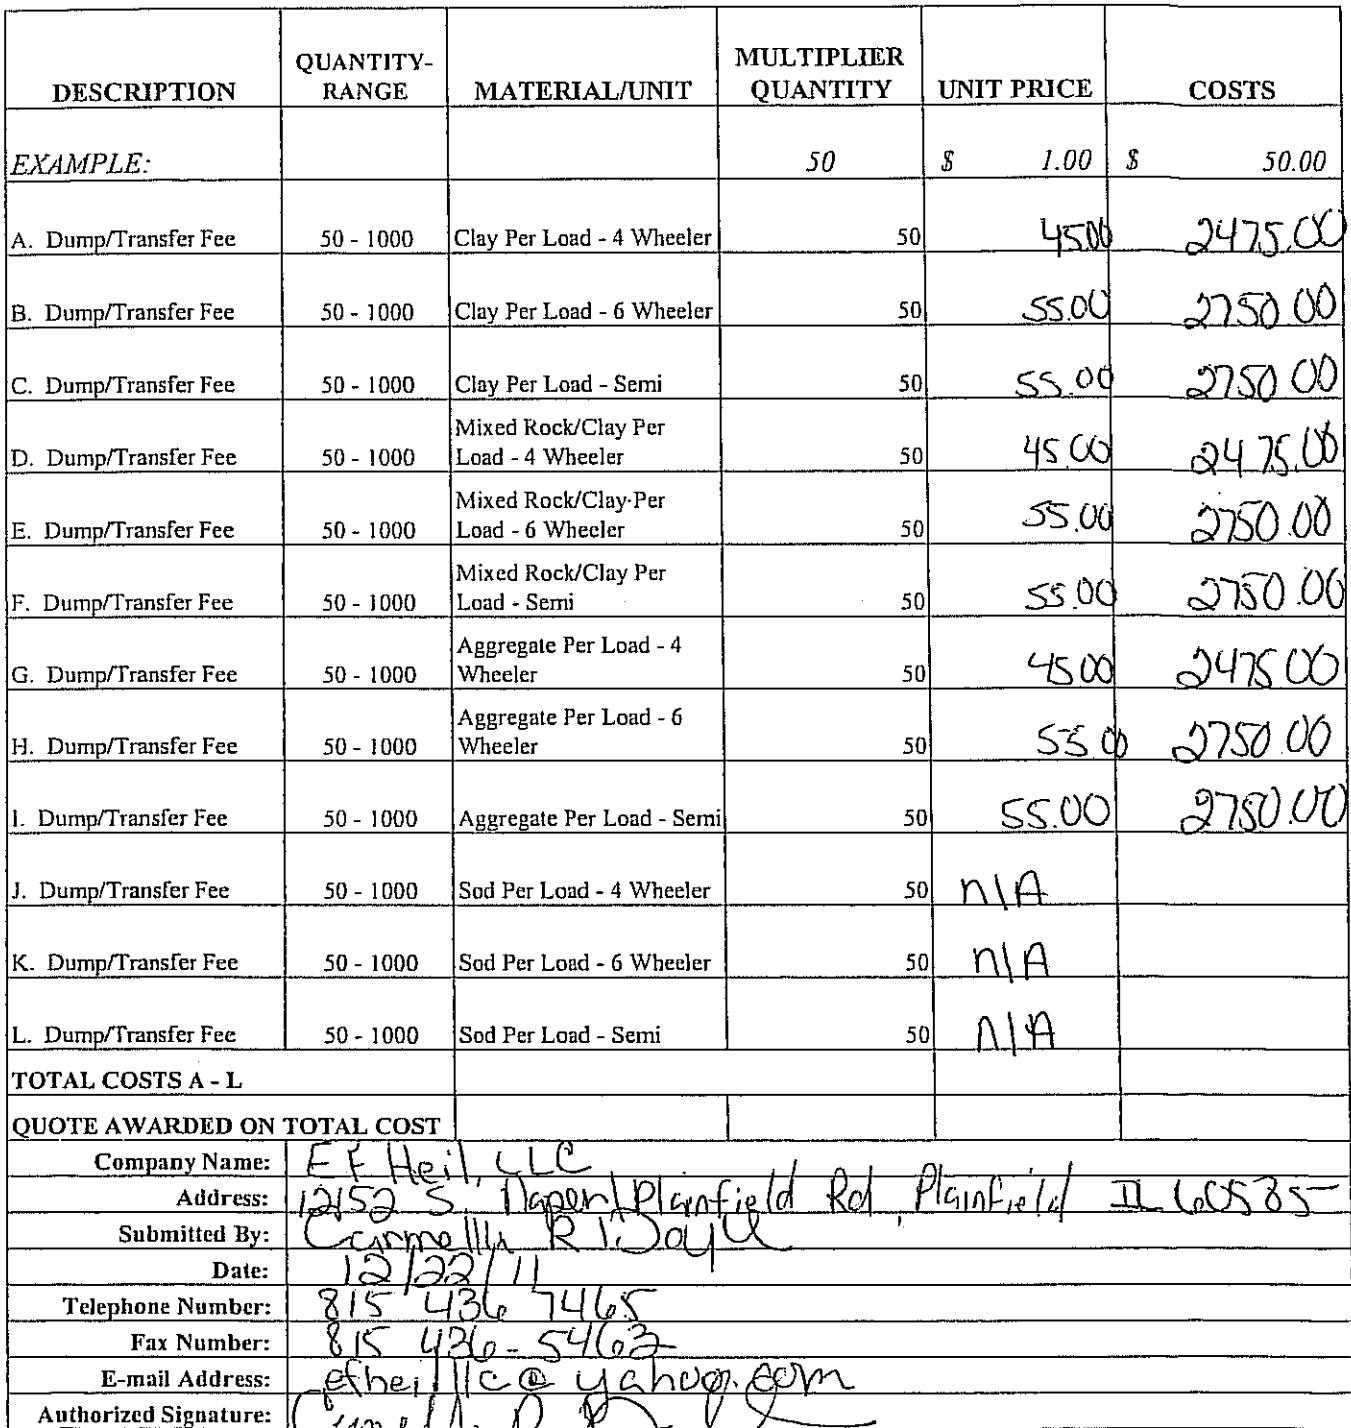 DESCRIPTION QUANTITY-RANGE MATERIAL/UNIT MULTIPLIER QUANTITY UNIT PRICE COSTS
EXAMPLE: 50 $ 1.00 $ 50.00
A. Dump/Transfer Fee 50 - 1000 Clay Per Load - 4 Wheeler 50 45.00 2475.00
B. Dump/Transfer Fee 50 - 1000 Clay Per Load - 6 Wheeler 50 55.00 2750.00
C. Dump/Transfer Fee 50 - 1000 Clay Per Load - Semi 50 55.00 2750 00
D. Dump/Transfer Fee 50 - 1000 Mixed Rock/Clay Per Load - 4 Wheeler 50 45.00 2475.00
E. Dump/Transfer Fee 50 - 1000 Mixed Rock/Clay Per Load - 6 Wheeler 50 55.00 2750.00
F. Dump/Transfer Fee 50 - 1000 Mixed Rock/Clay Per Load - Semi 50 55.00 2750.00
G. Dump/Transfer Fee 50 - 1000 Aggregate Per Load - 4 Wheeler 50 45.00 2475 00
H. Dump/Transfer Fee 50 - 1000 Aggregate Per Load - 6 Wheeler 50 55.00 2750.00
I. Dump/Transfer Fee 50 - 1000 Aggregate Per Load - Semi 50 55.00 2750.00
J. Dump/Transfer Fee 50 - 1000 Sod Per Load - 4 Wheeler 50 n/A
K. Dump/Transfer Fee 50 - 1000 Sod Per Load - 6 Wheeler 50 n/A
L. Dump/Transfer Fee 50 - 1000 Sod Per Load - Semi 50 n/A
TOTAL COSTS A - L
QUOTE AWARDED ON TOTAL COST
Company Name: E F Heil, LLC
Address: 12152 S. Naper/Plainfield Rd, Plainfield IL 60585
Submitted By: R
Date: 12/22/11
Telephone Number: 815 436 7465
Fax Number: 815 436-5462
E-mail Address: efheilllc@yahoo.com
Authorized Signature: